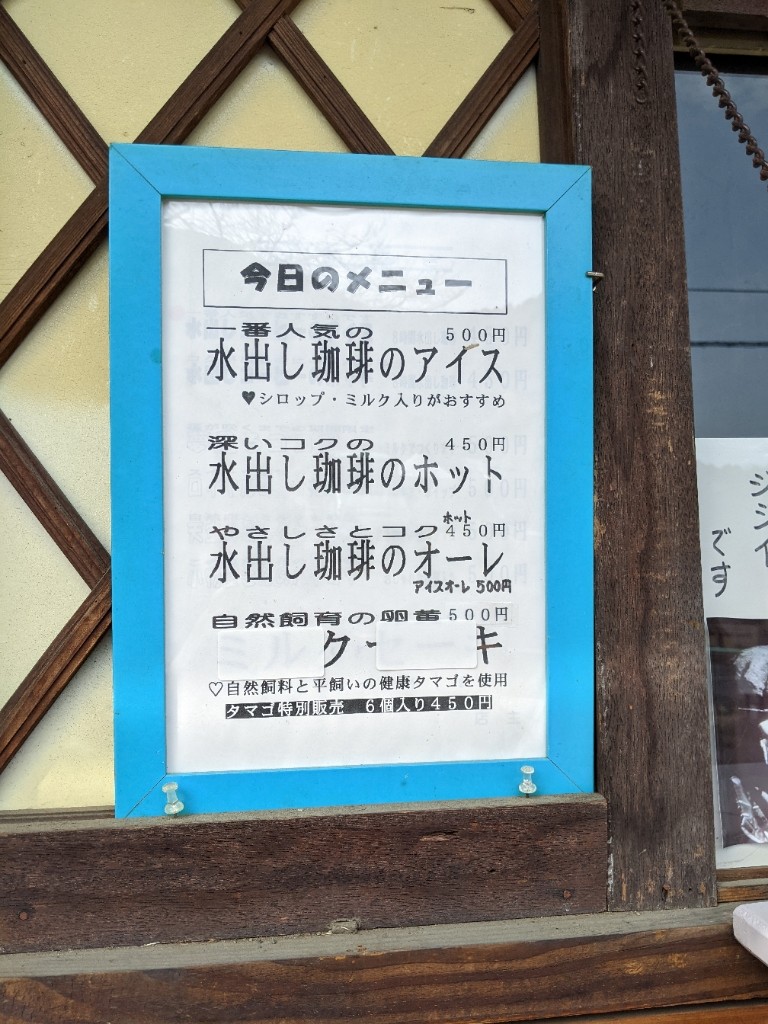 今日のメニュー
一番人気の 500円
水出し珈琲のアイス
♥シロップ・ミルク入りがおすすめ
深いコクの 450円
水出し珈琲のホット
やさしさとコク ホット 450円
水出し珈琲のオーレ
アイスオーレ 500円
自然飼育の卵黄 500円
ミルクセーキ
♡自然飼料と平飼いの健康タマゴを使用
タマゴ特別販売 6個入り450円
です